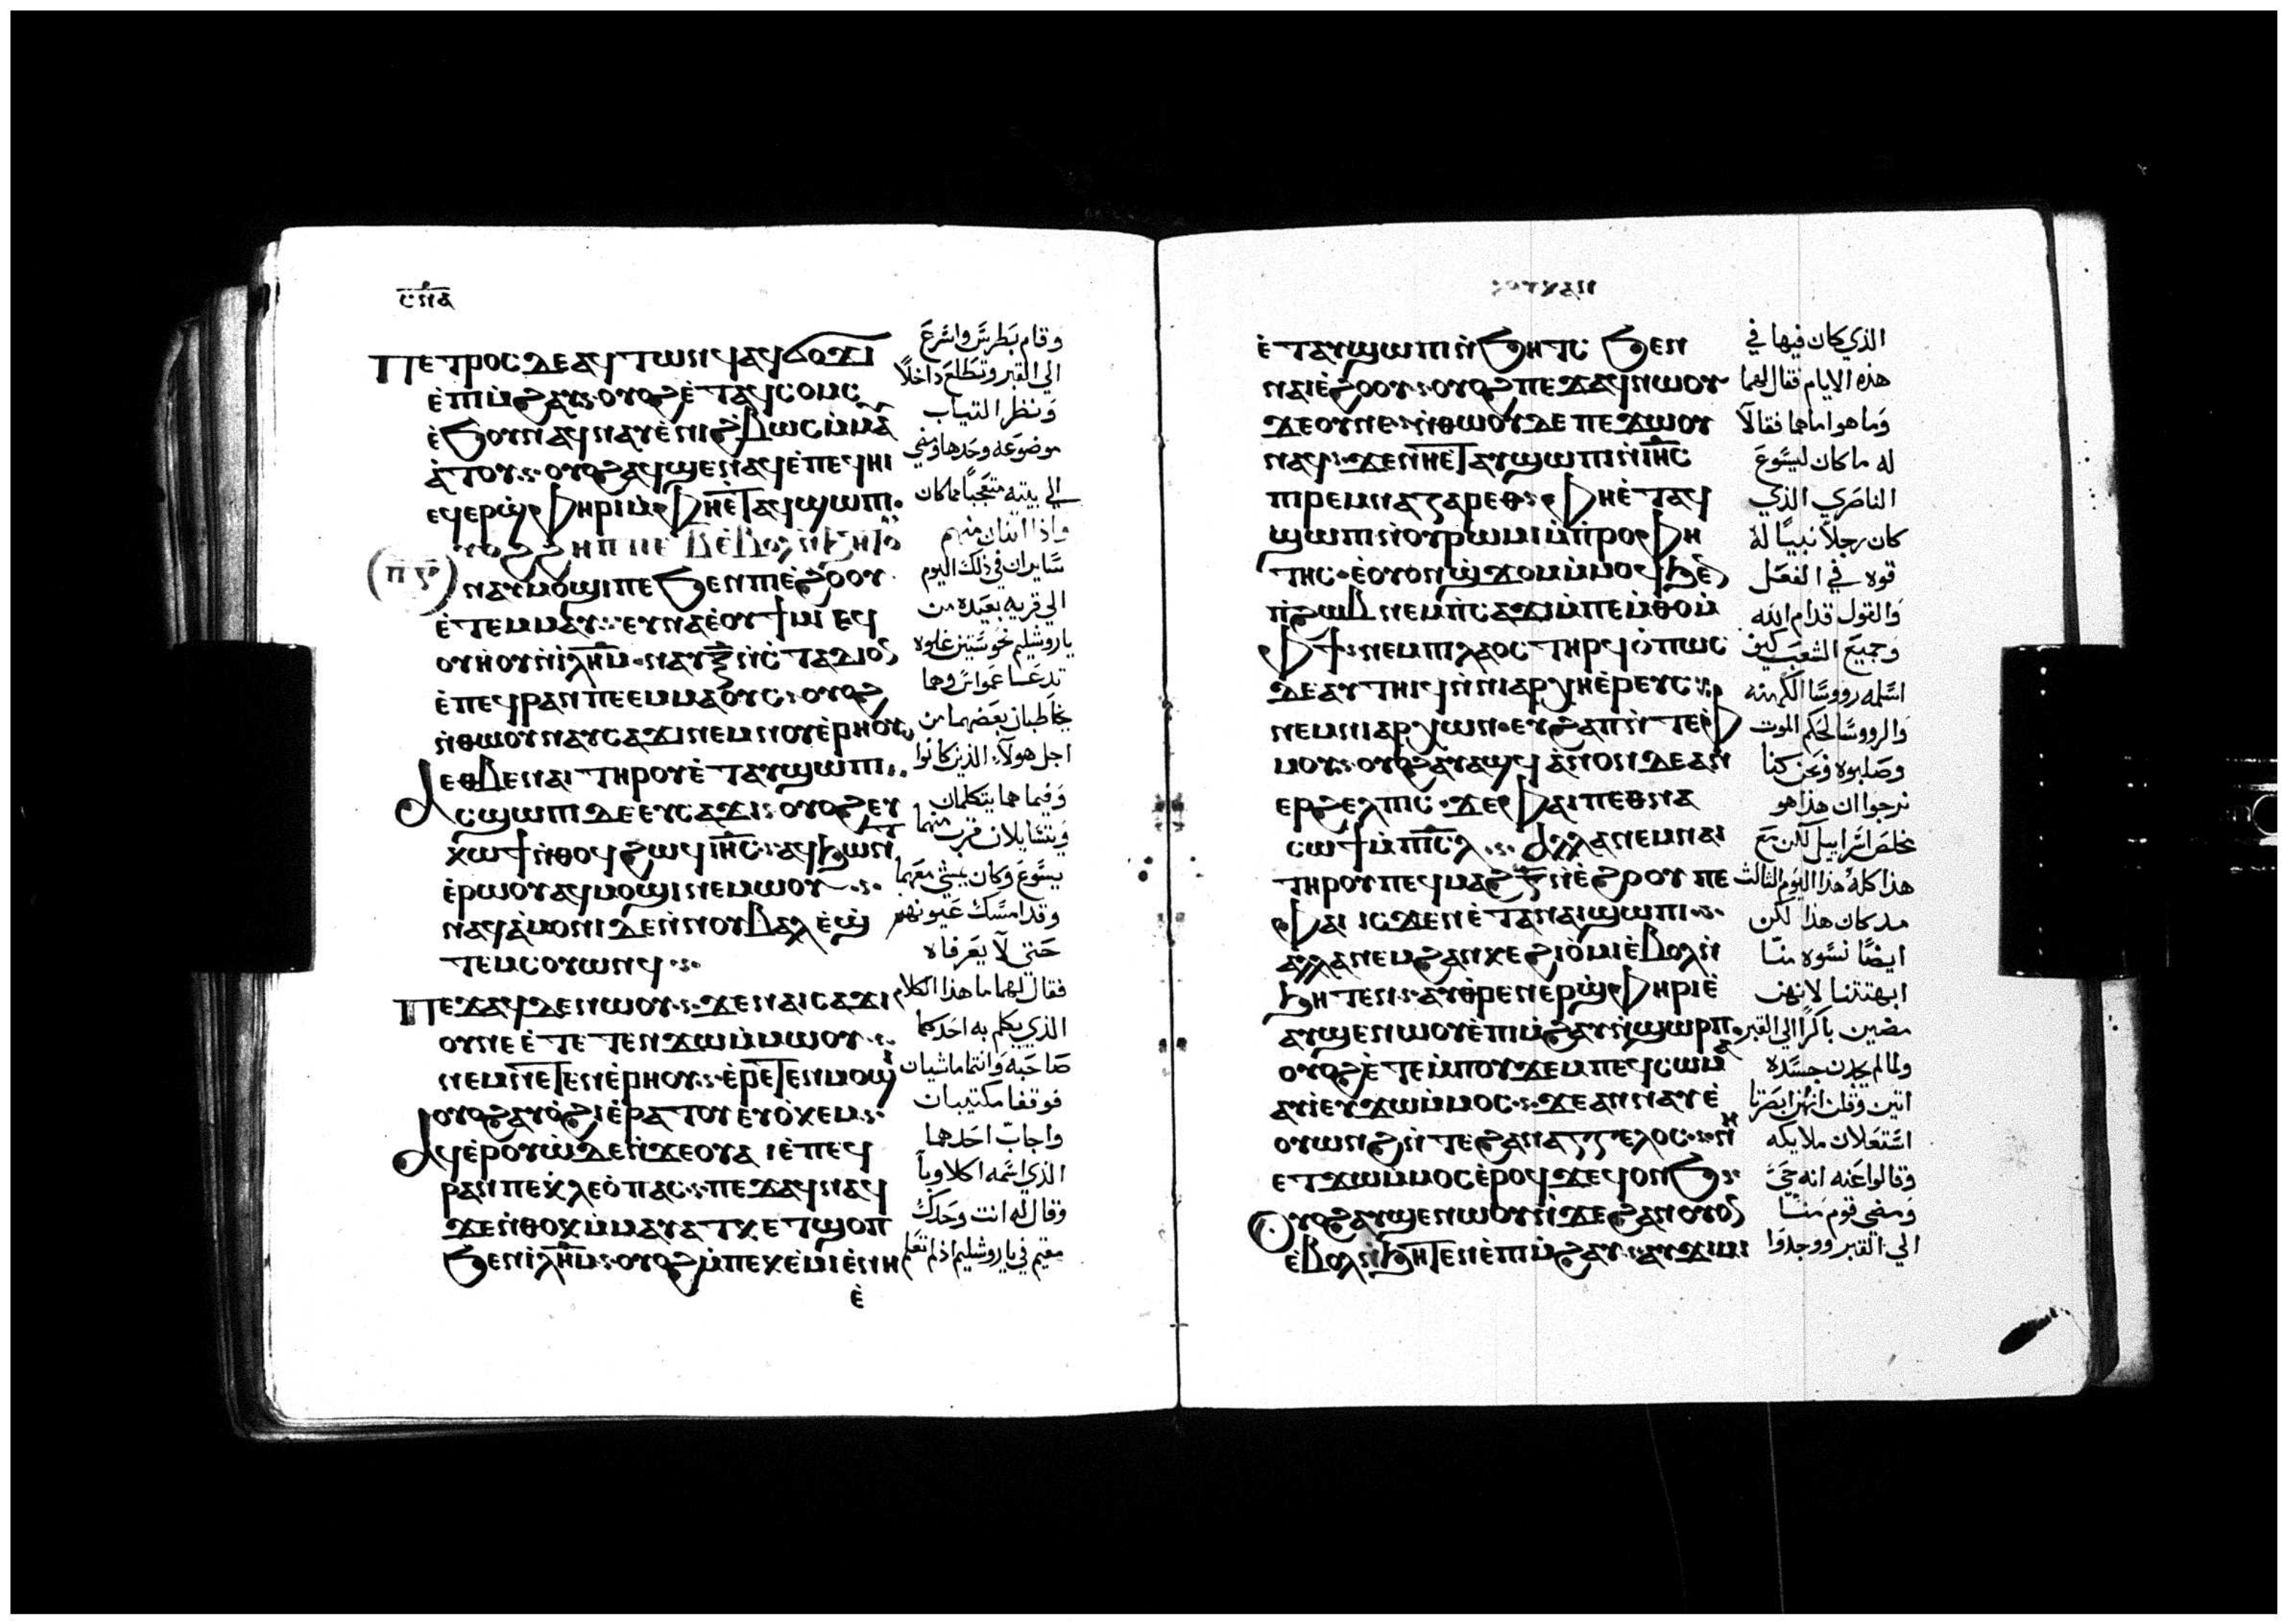 ⲥⲛⲁ
Ⲡⲉⲧⲣⲟⲥ ⲇⲉ ⲁϥⲧⲱⲛϥ ⲁϥϭⲟϫⲓ
ⲉ̀ⲡⲓⲙ̀ϩⲁⲩ ⲟⲩⲟϩ ⲉ̀ⲧⲁϥⲥⲟⲙⲥ
ⲉ̀ϧⲟⲩⲛ ⲁϥⲛⲁⲩ ⲉ̀ⲛⲓϩⲃⲱⲥ ⲙ̀ⲙⲁ
ⲁ̀ⲧⲟⲩ ⲟⲩⲟϩ ⲁϥϣⲉⲛⲁϥ ⲉ̀ⲡⲉϥⲏⲓ
ⲉϥⲉⲣϣ̀ⲫⲏⲣⲓ ⲙ̀ⲫⲏⲉ̀ⲧⲁϥϣⲱⲡⲓ
ⲟⲩⲟϩ ϩⲏⲡⲡⲉ ⲃ̅ ⲉ̀ⲃⲟⲗ ⲛ̀ϧⲏⲧⲟ
ⲡ̅ⲋ̅
ⲛⲁⲩⲙⲟϣⲓ ⲡⲉ ϧⲉⲛ ⲡⲓⲉ̀ϩⲟⲟⲩ
ⲉ̀ⲧⲉⲙⲙⲁⲩ ⲉⲩⲛⲁ ⲉ̀ⲟⲩϯⲙⲓ ⲉϥ
ⲟⲩⲏⲟⲩ ⲛ̀ⲓⲗ̅ⲏ̅ⲙ̅ ⲛⲁⲩ ⲝ̅ ⲛ̀ⲥ̀ⲧⲁⲇⲓⲟⲥ
ⲉ̀ⲡⲉϥⲣⲁⲛ ⲡⲉ ⲉⲙⲙⲁⲟⲩⲥ ⲟⲩⲟϩ
ⲛ̀ⲑⲱⲟⲩ ⲛⲁⲩⲥⲁϫⲓ ⲛⲉⲙ ⲛⲟⲩⲉ̀ⲣⲏⲟⲩ
ⲉⲑⲃⲉ ⲛⲁⲓ ⲧⲏⲣⲟⲩ ⲉ̀ⲧⲁⲩϣⲱⲡⲓ
Ⲁⲥϣⲱⲡⲓ ⲇⲉ ⲉⲩⲥⲁϫⲓ ⲟⲩⲟϩ ⲉⲩ
ⲭⲱϯ ⲛ̀ⲑⲟϥ ϩⲱϥ ⲓⲏ̅ⲥ̅ ⲁϥϧⲱⲛⲧ
ⲉ̀ⲣⲱⲟⲩ ⲁϥⲙⲟϣⲓ ⲛⲉⲙⲱⲟⲩ
ⲛⲁϥⲁ̀ⲙⲟⲛⲓ ⲇⲉ ⲛ̀ⲛⲟⲩⲃⲁⲗ ⲉ̀ϣ̀
ⲧⲉⲙⲥⲟⲩⲱⲛϥ
Ⲡⲉϫⲁϥ ⲇⲉ ⲛⲱⲟⲩ ϫⲉ ⲛⲁⲓⲥⲁϫⲓ
ⲟⲩ ⲛⲉ ⲉ̀ⲧⲉⲧⲉⲛϫⲱ ⲙ̀ⲙⲱⲟⲩ
ⲛⲉⲙ ⲛⲉⲧⲉⲛⲉ̀ⲣⲏⲟⲩ ⲉ̀ⲣⲉⲧⲉⲛⲙⲟϣⲓ
ⲟⲩⲟϩ ⲁⲩⲟ̀ϩⲓ ⲉ̀ⲣⲁⲧⲟⲩ ⲉⲩⲟ̀ⲕⲉⲙ
Ⲁϥⲉ̀ⲣⲟⲩⲱ̀ ⲇⲉ ⲛ̀ϫⲉ ⲟⲩⲁⲓ ⲉ̀ⲡⲉϥ
ⲣⲁⲛ ⲡⲉ ⲭ̀ⲗⲉⲟ̀ⲡⲁⲥ ⲡⲉϫⲁϥ ⲛⲁϥ
ϫⲉ ⲛ̀ⲑⲟⲕ ⲙ̀ⲙⲁⲩⲁⲧⲕ ⲉⲧϣⲟⲡ
ϧⲉⲛ ⲓⲗ̅ⲏ̅ⲙ̅ ⲟⲩⲟϩ ⲙ̀ⲡⲉⲕⲉ̀ⲙⲓ ⲉ̀ⲛⲏ
ⲉ̀
وقام بطرس واسرع
الي القبر وتطلع داخلاً
ونظر التياب
موضوعه وحدها ومضي
الي بيته متعجباً مما كان
واذا اتنان منهم
سايران في ذلك اليوم
الي قريه بعيده من
ياروشليم نحو ستين غلوه
تدعا عمواس وهما
يخاطبان بعضهما من
اجل هولاء الذين كانوا
وفيما هما يتكلمان
ويتسايلان قرب منهما
يسوع وكان يمشي معهما
وقد امسك عيونهم
حتي لا يعرفاه
فقال لهما ما هذا الكلام
الذي يكلم به احدكما
صاحبه وانتما ماشيان
فوقفا مكتيبان
واجاب احدهما
الذي اسمه اكلاوبا
وقال له انت وحدك
مقيم في ياروشليم اذ لم تعلم
ⲉ̀ⲧⲁⲩϣⲱⲡⲓ ⲛ̀ϧⲏⲧⲥ ϧⲉⲛ
ⲛⲁⲓⲉ̀ϩⲟⲟⲩ ⲟⲩⲟϩ ⲡⲉϫⲁϥ ⲛⲱⲟⲩ
ϫⲉ ⲟⲩ ⲛⲉ ⲛ̀ⲑⲱⲟⲩ ⲇⲉ ⲡⲉϫⲱⲟⲩ
ⲛⲁϥ ϫⲉ ⲛⲏⲉⲧⲁⲩϣⲱⲡⲓ ⲛ̀ⲓⲏ̅ⲥ̅
ⲡⲓⲣⲉⲙⲛⲁⲍⲁⲣⲉⲑ ⲫⲏⲉ̀ⲧⲁϥ
ϣⲱⲡⲓ ⲛ̀ⲟⲩⲣⲱⲙⲓ ⲙ̀ⲡ̀ⲣⲟⲫⲏ
ⲧⲏⲥ ⲉ̀ⲟⲩⲟⲛ ϣ̀ϫⲟⲙ ⲙ̀ⲙⲟϥ ϧⲉⲛ
ⲡ̀ϩⲱⲃ ⲛⲉⲙ ⲡ̀ⲥⲁϫⲓ ⲙ̀ⲡⲉⲙ̀ⲑⲟ ⲙ̀
ⲫϯ ⲛⲉⲙ ⲡⲓⲗⲁⲟⲥ ⲧⲏⲣϥ ⲟ̀ⲡⲱⲥ
ⲇⲉ ⲁⲩⲧⲏⲓϥ ⲛ̀ⲛⲓⲁⲣⲭⲏⲉ̀ⲣⲉⲩⲥ
ⲛⲉⲙ ⲛⲓⲁⲣⲭⲱⲛ ⲉⲩϩⲁⲡ ⲛ̀ⲧⲉ ⲫ̀
ⲙⲟⲩ ⲟⲩⲟϩ ⲁⲩⲁϣϥ ⲁⲛⲟⲛ ⲇⲉ ⲁⲛ
ⲉⲣϩⲉⲗⲡⲓⲥ ϫⲉ ⲫⲁⲓ ⲡⲉⲑⲛⲁ
ⲥⲱϯ ⲙ̀ⲡⲓⲥ̅ⲗ̅ ⲁⲗⲗⲁ ⲛⲉⲙ ⲛⲁⲓ
ⲧⲏⲣⲟⲩ ⲡⲉϥⲙⲁϩ ⲅ̅ ⲛ̀ⲉ̀ϩⲟⲟⲩ ⲡⲉ
ⲫⲁⲓ ⲓⲥϫⲉⲛ ⲉ̀ⲧⲁ ⲛⲁⲓ ϣⲱⲡⲓ
ⲁⲗⲗⲁ ⲛⲉⲙ ϩⲁⲛⲕⲉϩⲓⲟ̀ⲙⲓ ⲉ̀ⲃⲟⲗ ⲛ̀
ϧⲏⲧⲉⲛ ⲁⲩⲑ̀ⲣⲉⲛⲉⲣϣ̀ⲫⲏⲣⲓ ⲉ̀
ⲁⲩϣⲉⲛⲱⲟⲩ ⲉ̀ⲡⲓⲙ̀ϩⲁⲩ ⲛ̀ϣⲱⲣⲡ
ⲟⲩⲟϩ ⲉ̀ⲧⲉⲙ̀ⲡⲟⲩϫⲉⲙ ⲡⲉϥⲥⲱⲙⲁ
ⲁⲩⲓ̀ ⲉⲩϫⲱ ⲙ̀ⲙⲟⲥ ϫⲉ ⲁⲛⲛⲁⲩ ⲉ̀
ⲟⲩⲱⲛϩ ⲛ̀ⲧⲉ ϩⲁⲛⲁⲅⲅⲉⲗⲟⲥ ⲛⲏ
ⲉⲧϫⲱ ⲙ̀ⲙⲟⲥ ⲉ̀ⲣⲟϥ ϫⲉ ϥⲟⲛϧ
Ⲟⲩⲟϩ ⲁⲩϣⲉⲛⲱⲟⲩ ⲛ̀ϫⲉ ϩⲁⲛⲟⲩⲟⲛ
ⲉ̀ⲃⲟⲗ ⲛ̀ϧⲏⲧⲉⲛ ⲉ̀ⲡⲓⲙ̀ϩⲁⲩ ⲁⲩϫⲓⲙⲓ
الذي كان فيها في
هذه الايام فقال لهما
وما هو اما هما فقالا
له ما كان ليسوع
الناصري الذي
كان رجلاً نبياً له
قوه في الفعل
والقول قدام الله
وجميع الشعب كيف
اسلمه رووسا الكهنه
والرووسا لحكم الموت
وصلبوه ونحن كنا
نرجوا ان هذا هو
مخلص اسراييل لكن مع
هذا كله هذا اليوم الثالث
مد كان هذا لكن
ايضاً نسوه منا
ابهتتنا لانهن
مضين باكراً الي القبر
ولما لم يجدن جسده
اتين وقلن انهن ابصرنا
استعلان ملايكه
وقالوا عنه انه حي
ومضي قوم منا
الي القبر ووجدوا